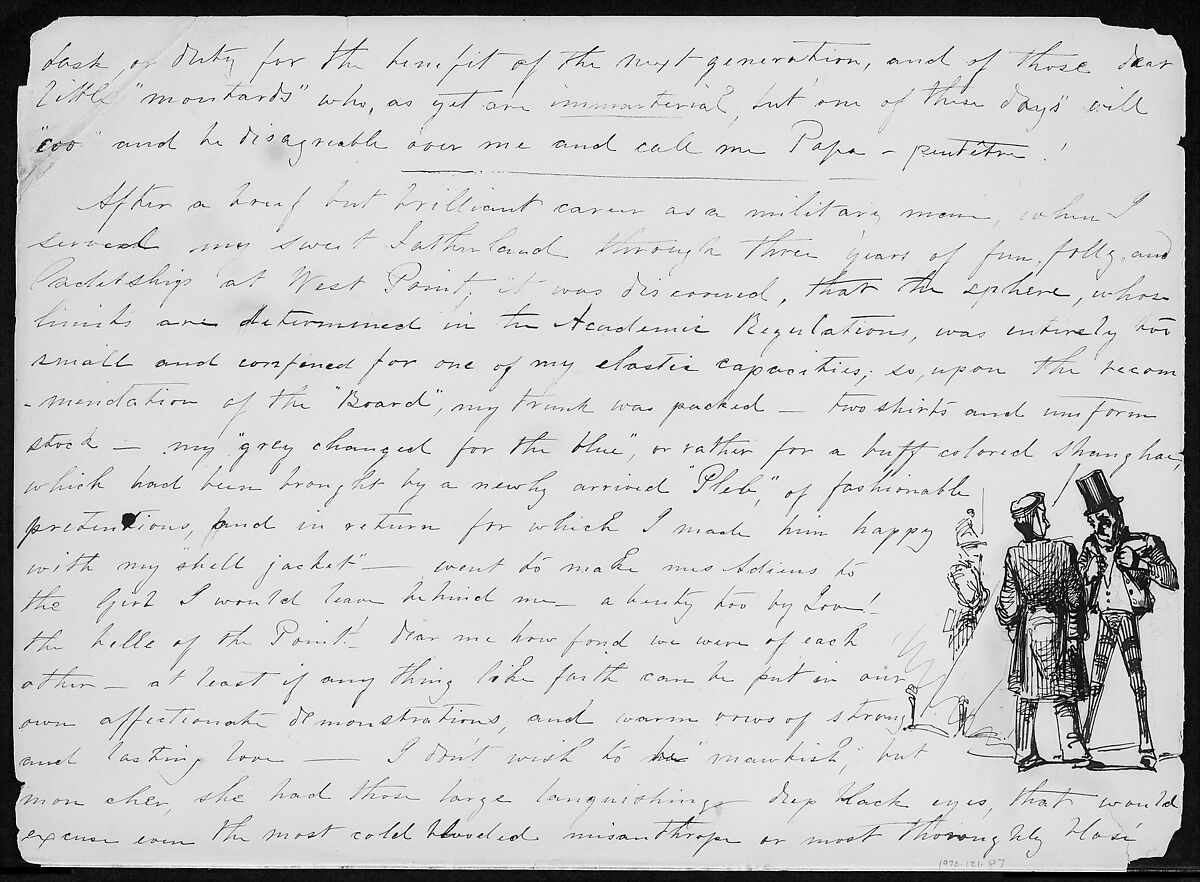 task, or duty for the benefit of the next generation, and of those dear
little "moutards" who, as yet are immaterial, but "one of these days" will
"coo" and be disagreeable over me and call me Papa – peutêtre!
After a brief but brilliant career as a military man, when I
served my sweet Fatherland through three years of fun, folly, and
Cadetship at West Point, it was discovered, that the sphere, whose
limits are determined in the Academic Regulations, was entirely too
small and confined for one of my elastic capacities; so, upon the recom
-mendation of the "Board", my trunk was packed – two shirts and uniform
stock – my "grey changed for the blue", or rather for a buff colored Shanghae,
which had been brought by a newly arrived "Pleb", of fashionable
pretentions, and in return for which I made him happy
with my "shell jacket" – went to make mes Adieus to
the Girl I would leave behind me – a beauty too by Jove!
the belle of the Point! – dear me how fond we were of each
other – at least if any thing like faith can be put in our
own affectionate demonstrations, and warm vows of strong
and lasting love – I don't wish to be "mawkish", but
mon cher, she had those large languishing deep black eyes, that would
excuse even the most cold blooded misanthrope or most thoroughly blasé
1970.121.87